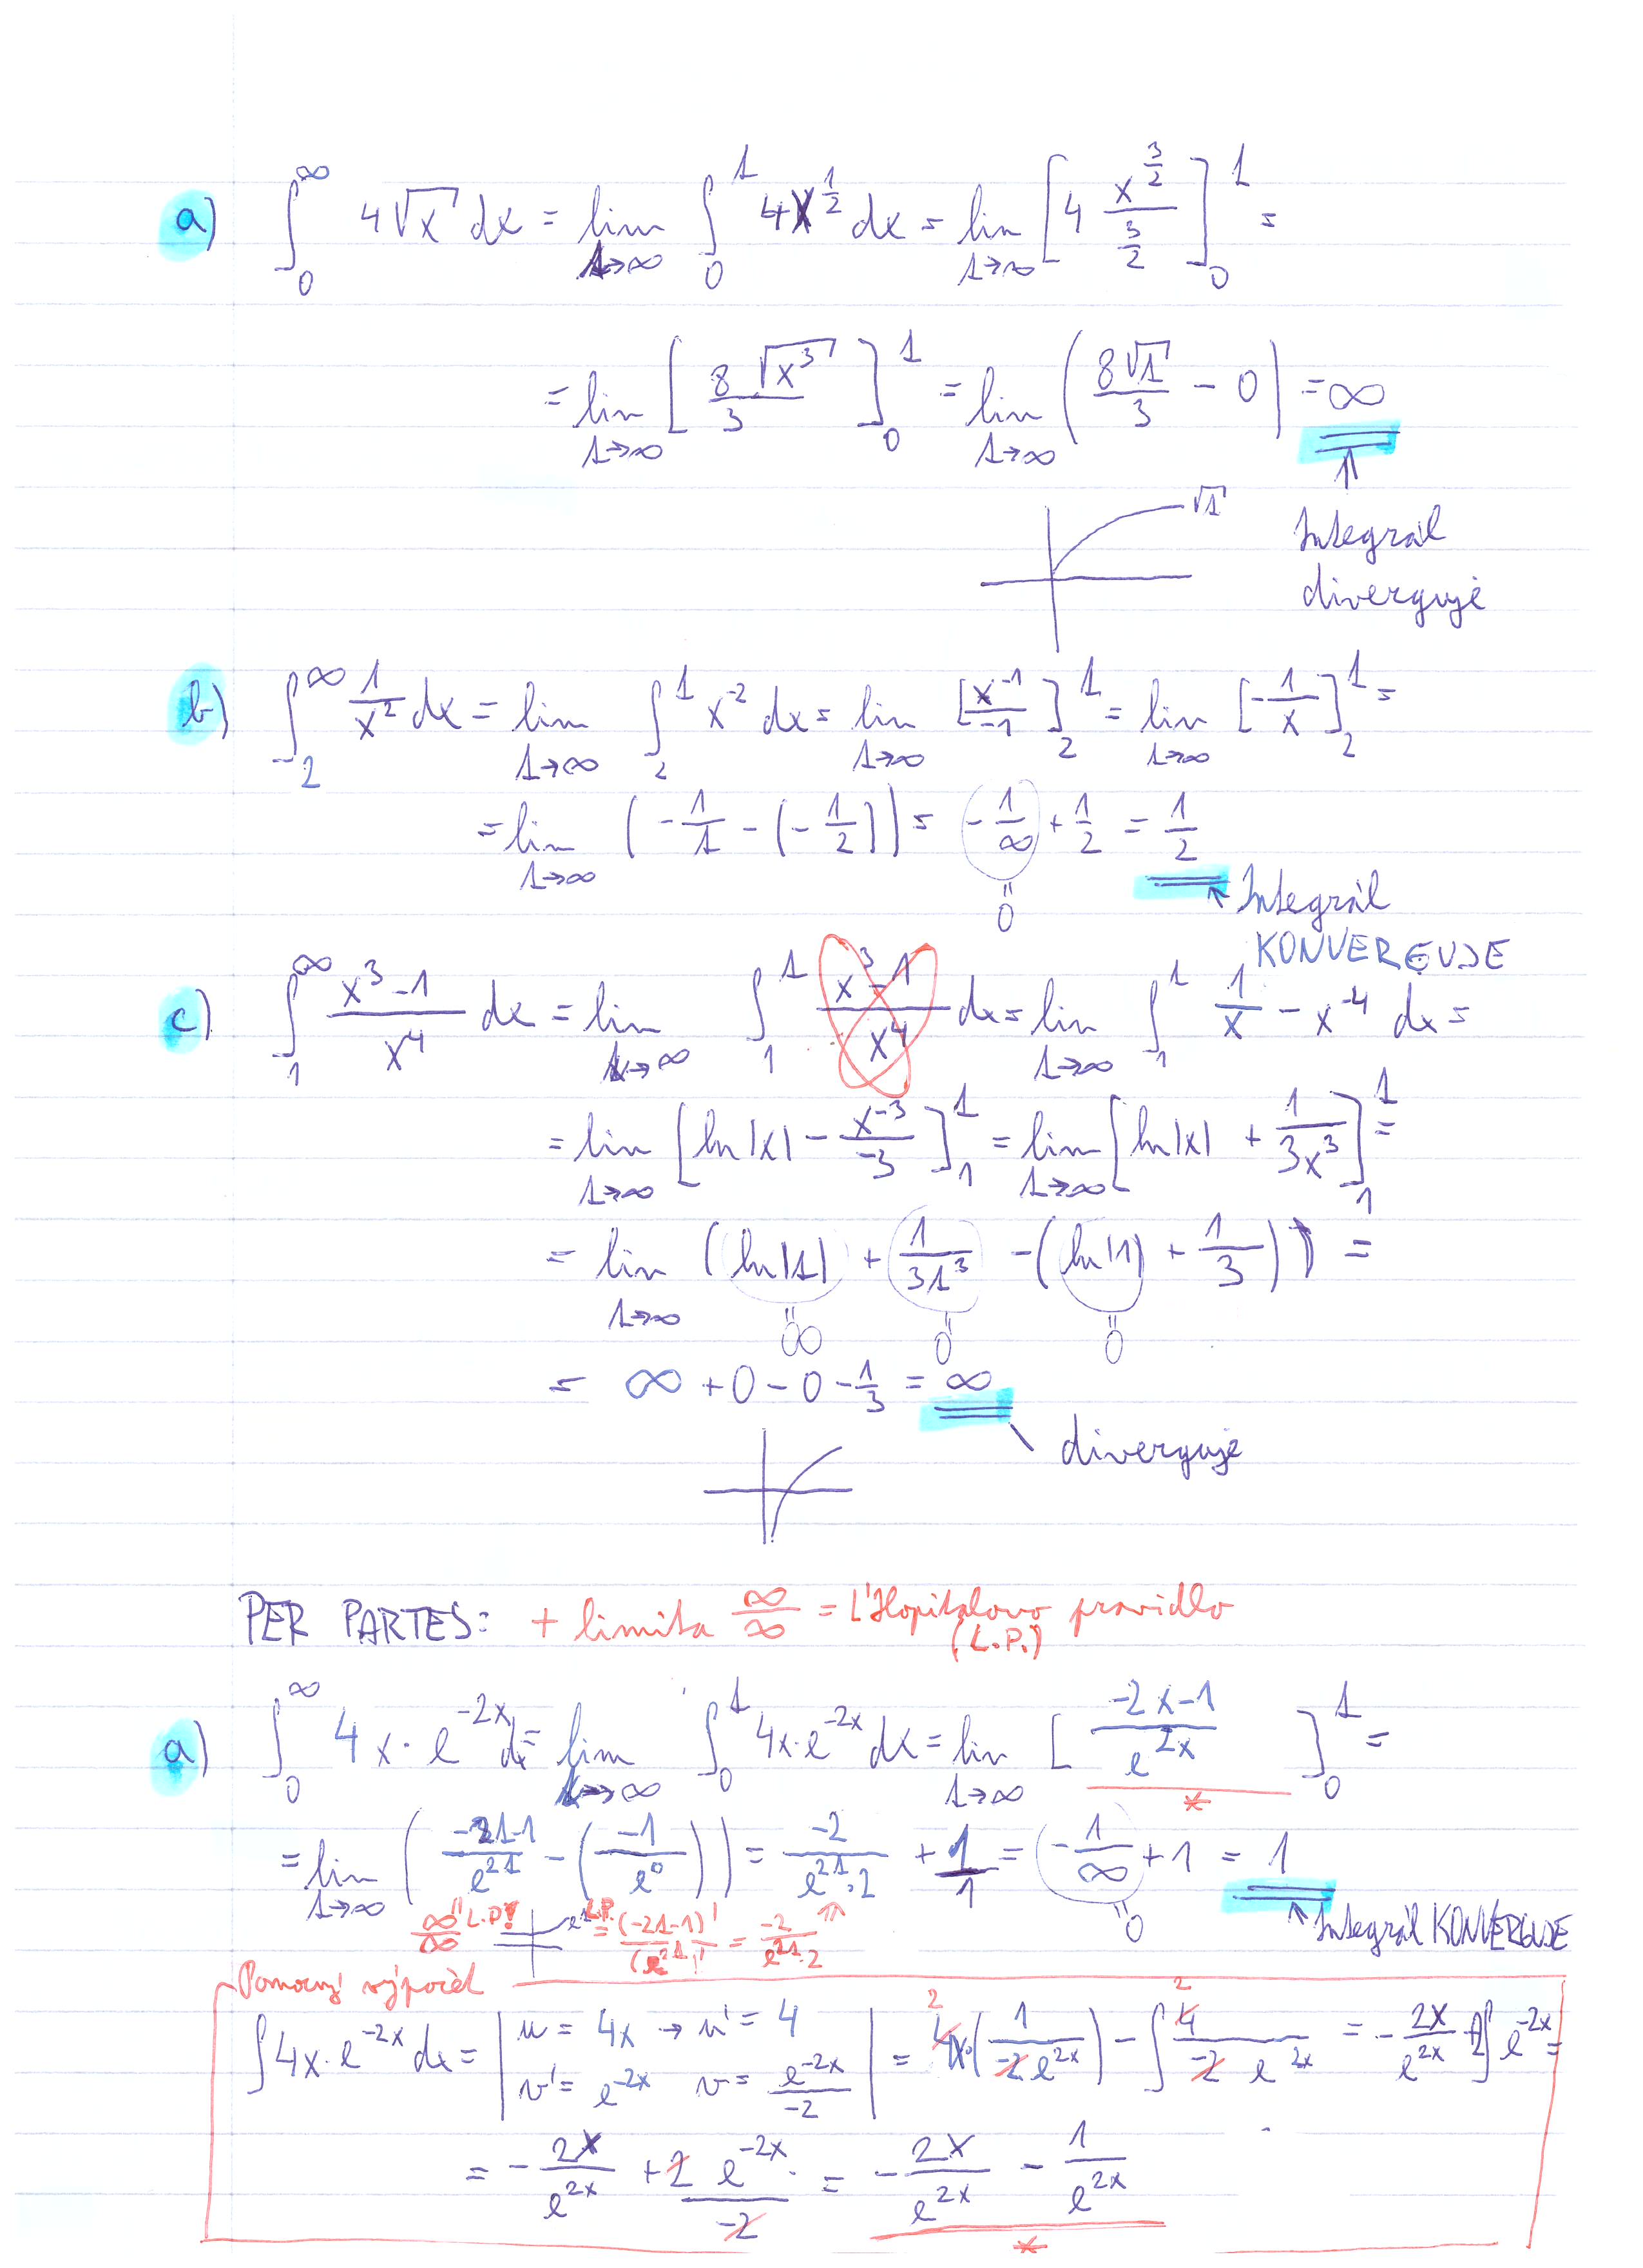 a) ∫₀^∞ 4√x dx = lim_{1→∞} ∫₀^1 4x^{1/2} dx = lim_{1→∞} [4 x^{3/2}/(3/2)]₀^1 =
= lim_{1→∞} [8√x³/3]₀^1 = lim_{1→∞} (8√1/3 - 0) = ∞
√1
Integrál
diverguje
b) ∫₂^∞ 1/x² dx = lim_{1→∞} ∫₂^1 x^{-2} dx = lim_{1→∞} [x^{-1}/-1]₂^1 = lim_{1→∞} [-1/x]₂^1 =
= lim_{1→∞} (-1/1 - (-1/2)) = -1/∞ + 1/2 = 1/2
"0
Integrál
KONVERGUJE
c) ∫₁^∞ (x³-1)/x⁴ dx = lim_{1→∞} ∫₁^1 (x³-1)/x⁴ dx = lim_{1→∞} ∫₁^1 1/x - x^{-4} dx =
= lim_{1→∞} [ln|x| - x^{-3}/-3]₁^1 = lim_{1→∞} [ln|x| + 1/3x³]₁^1 =
= lim_{1→∞} (ln|1| + 1/31³ - (ln|1| + 1/3)) =
"∞ "0 "0
= ∞ + 0 - 0 - 1/3 = ∞
diverguje
PER PARTES: + limita ∞/∞ = L'Hopitalovo pravidlo
(L.P.)
a) ∫₀^∞ 4x·e^{-2x} dx = lim_{1→∞} ∫₀^1 4x·e^{-2x} dx = lim_{1→∞} [(-2x-1)/e^{2x}]₀^1 =
*
= lim_{1→∞} ((-21-1)/e^{21} - (-1/e⁰)) = -2/(e^{21}·2) + 1/1 = -1/∞ + 1 = 1
"0
∞/∞ " L.P.! e^1 L.P. = (-21-1)'/(e^{21})' = -2/(e^{21}·2)
Integrál KONVERGUJE
Pomocný výpočet
∫4x·e^{-2x} dx = | u = 4x → u' = 4 v' = e^{-2x} v = e^{-2x}/-2 | = 4x·(1/(-2e^{2x})) - ∫ 4/(-2 e^{2x}) = -2x/e^{2x} + 2∫e^{-2x} =
2 2
= -2x/e^{2x} + 2 e^{-2x}/-2 · = -2x/e^{2x} - 1/e^{2x}
*